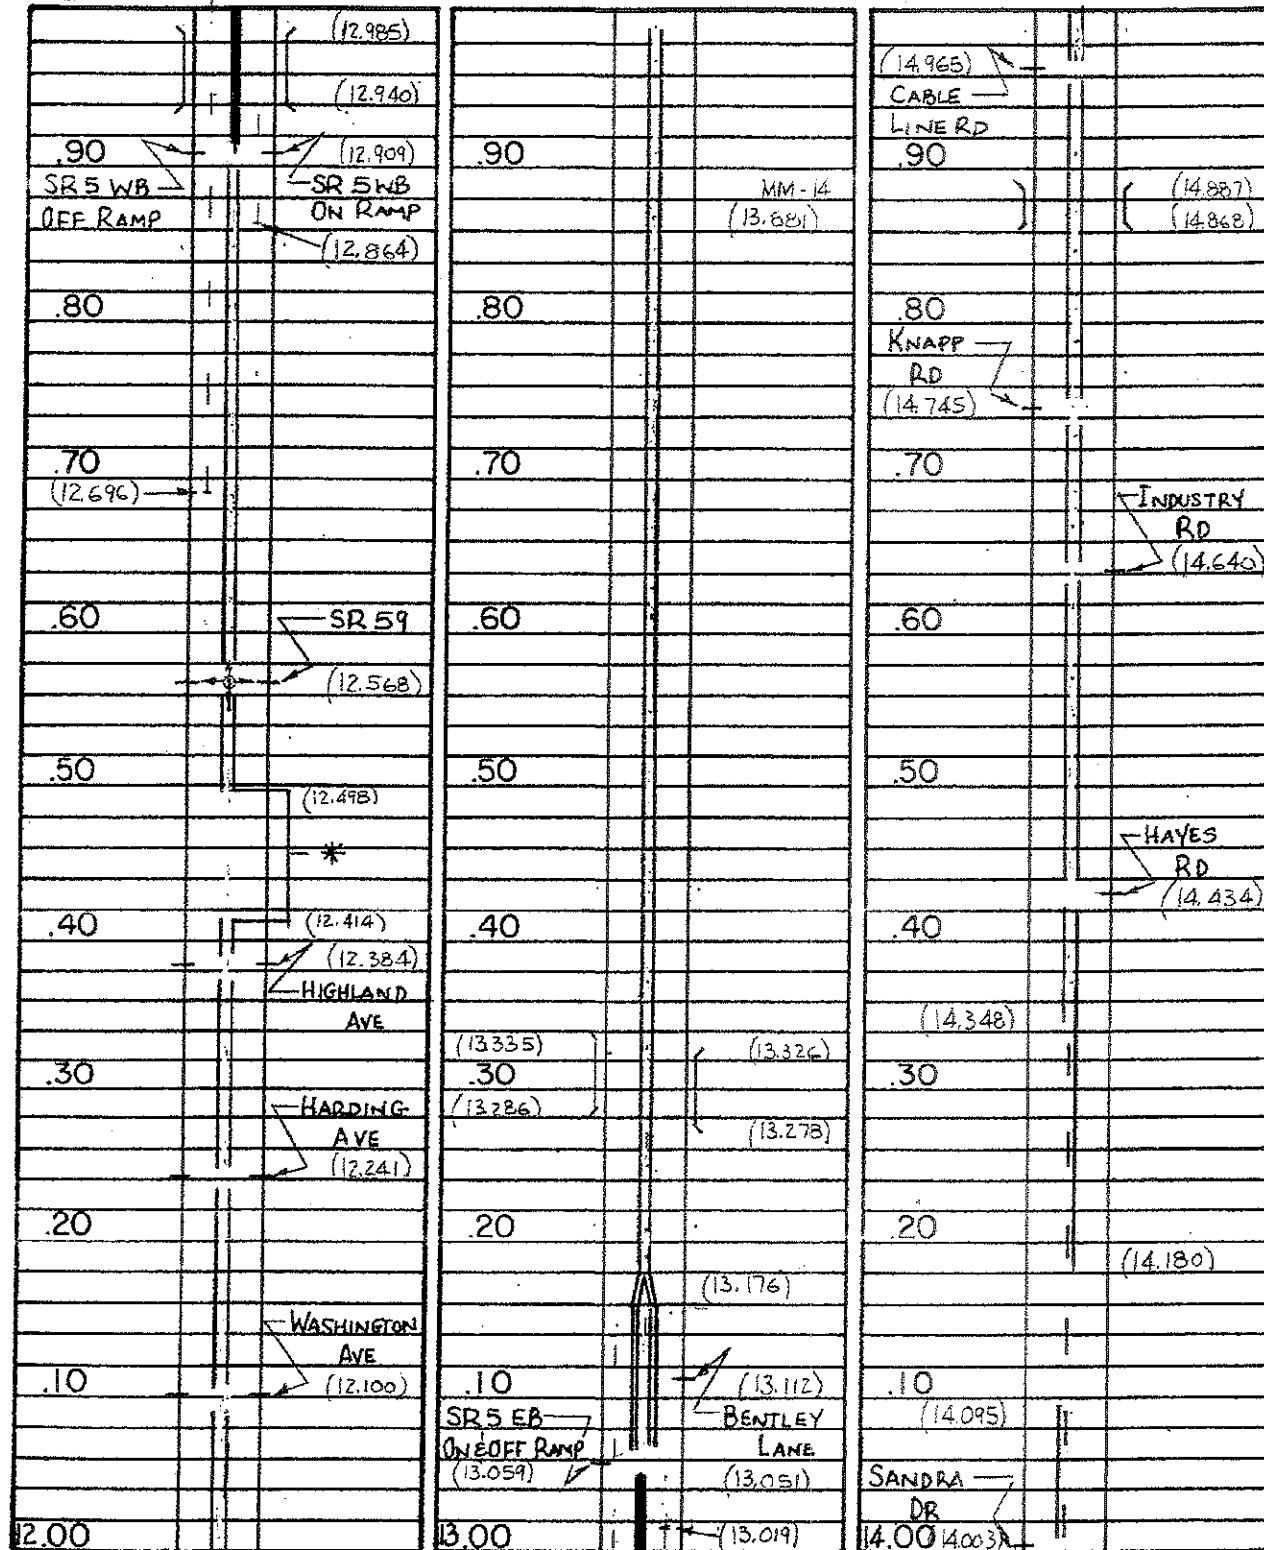 (12.985)
(12.940)
.90
(12.909)
SR 5 WB
OFF RAMP
SR 5 WB
ON RAMP
(12.864)
.80
.70
(12.696)
.60
SR 59
(12.568)
.50
(12.498)
*
.40
(12.414)
(12.384)
HIGHLAND
AVE
.30
HARDING
AVE
(12.241)
.20
WASHINGTON
AVE
(12.100)
.10
12.00
.90
MM-14
(13.881)
.80
.70
.60
.50
.40
(13.335)
(13.326)
.30
(13.286)
(13.278)
.20
(13.176)
.10
(13.112)
BENTLEY
LANE
SR 5 EB
ON & OFF RAMP
(13.059)
(13.051)
13.00
(13.019)
(14.965)
CABLE
LINE RD
.90
(14.887)
(14.868)
.80
KNAPP
RD
(14.745)
.70
INDUSTRY
RD
(14.640)
.60
.50
HAYES
RD
(14.434)
.40
(14.348)
.30
.20
(14.180)
.10
(14.095)
SANDRA
DR
14.00 (14.003)